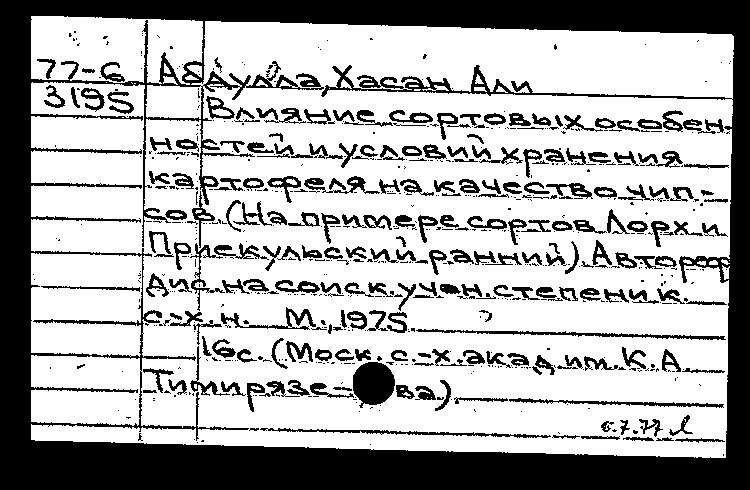 77-6 Абдулла, Хасан Али
3195 Влияние сортовых особен-
ностей и условий хранения
картофеля на качество чип-
сов. (На примере сортов Лорх и
Приекульский ранний). Автореф.
дис. на соиск. учен. степени к.
с.-х. н. М., 1975.
16с. (Моск. с.-х. акад. им. К.А.
Тимирязе-ва).
6.7.77